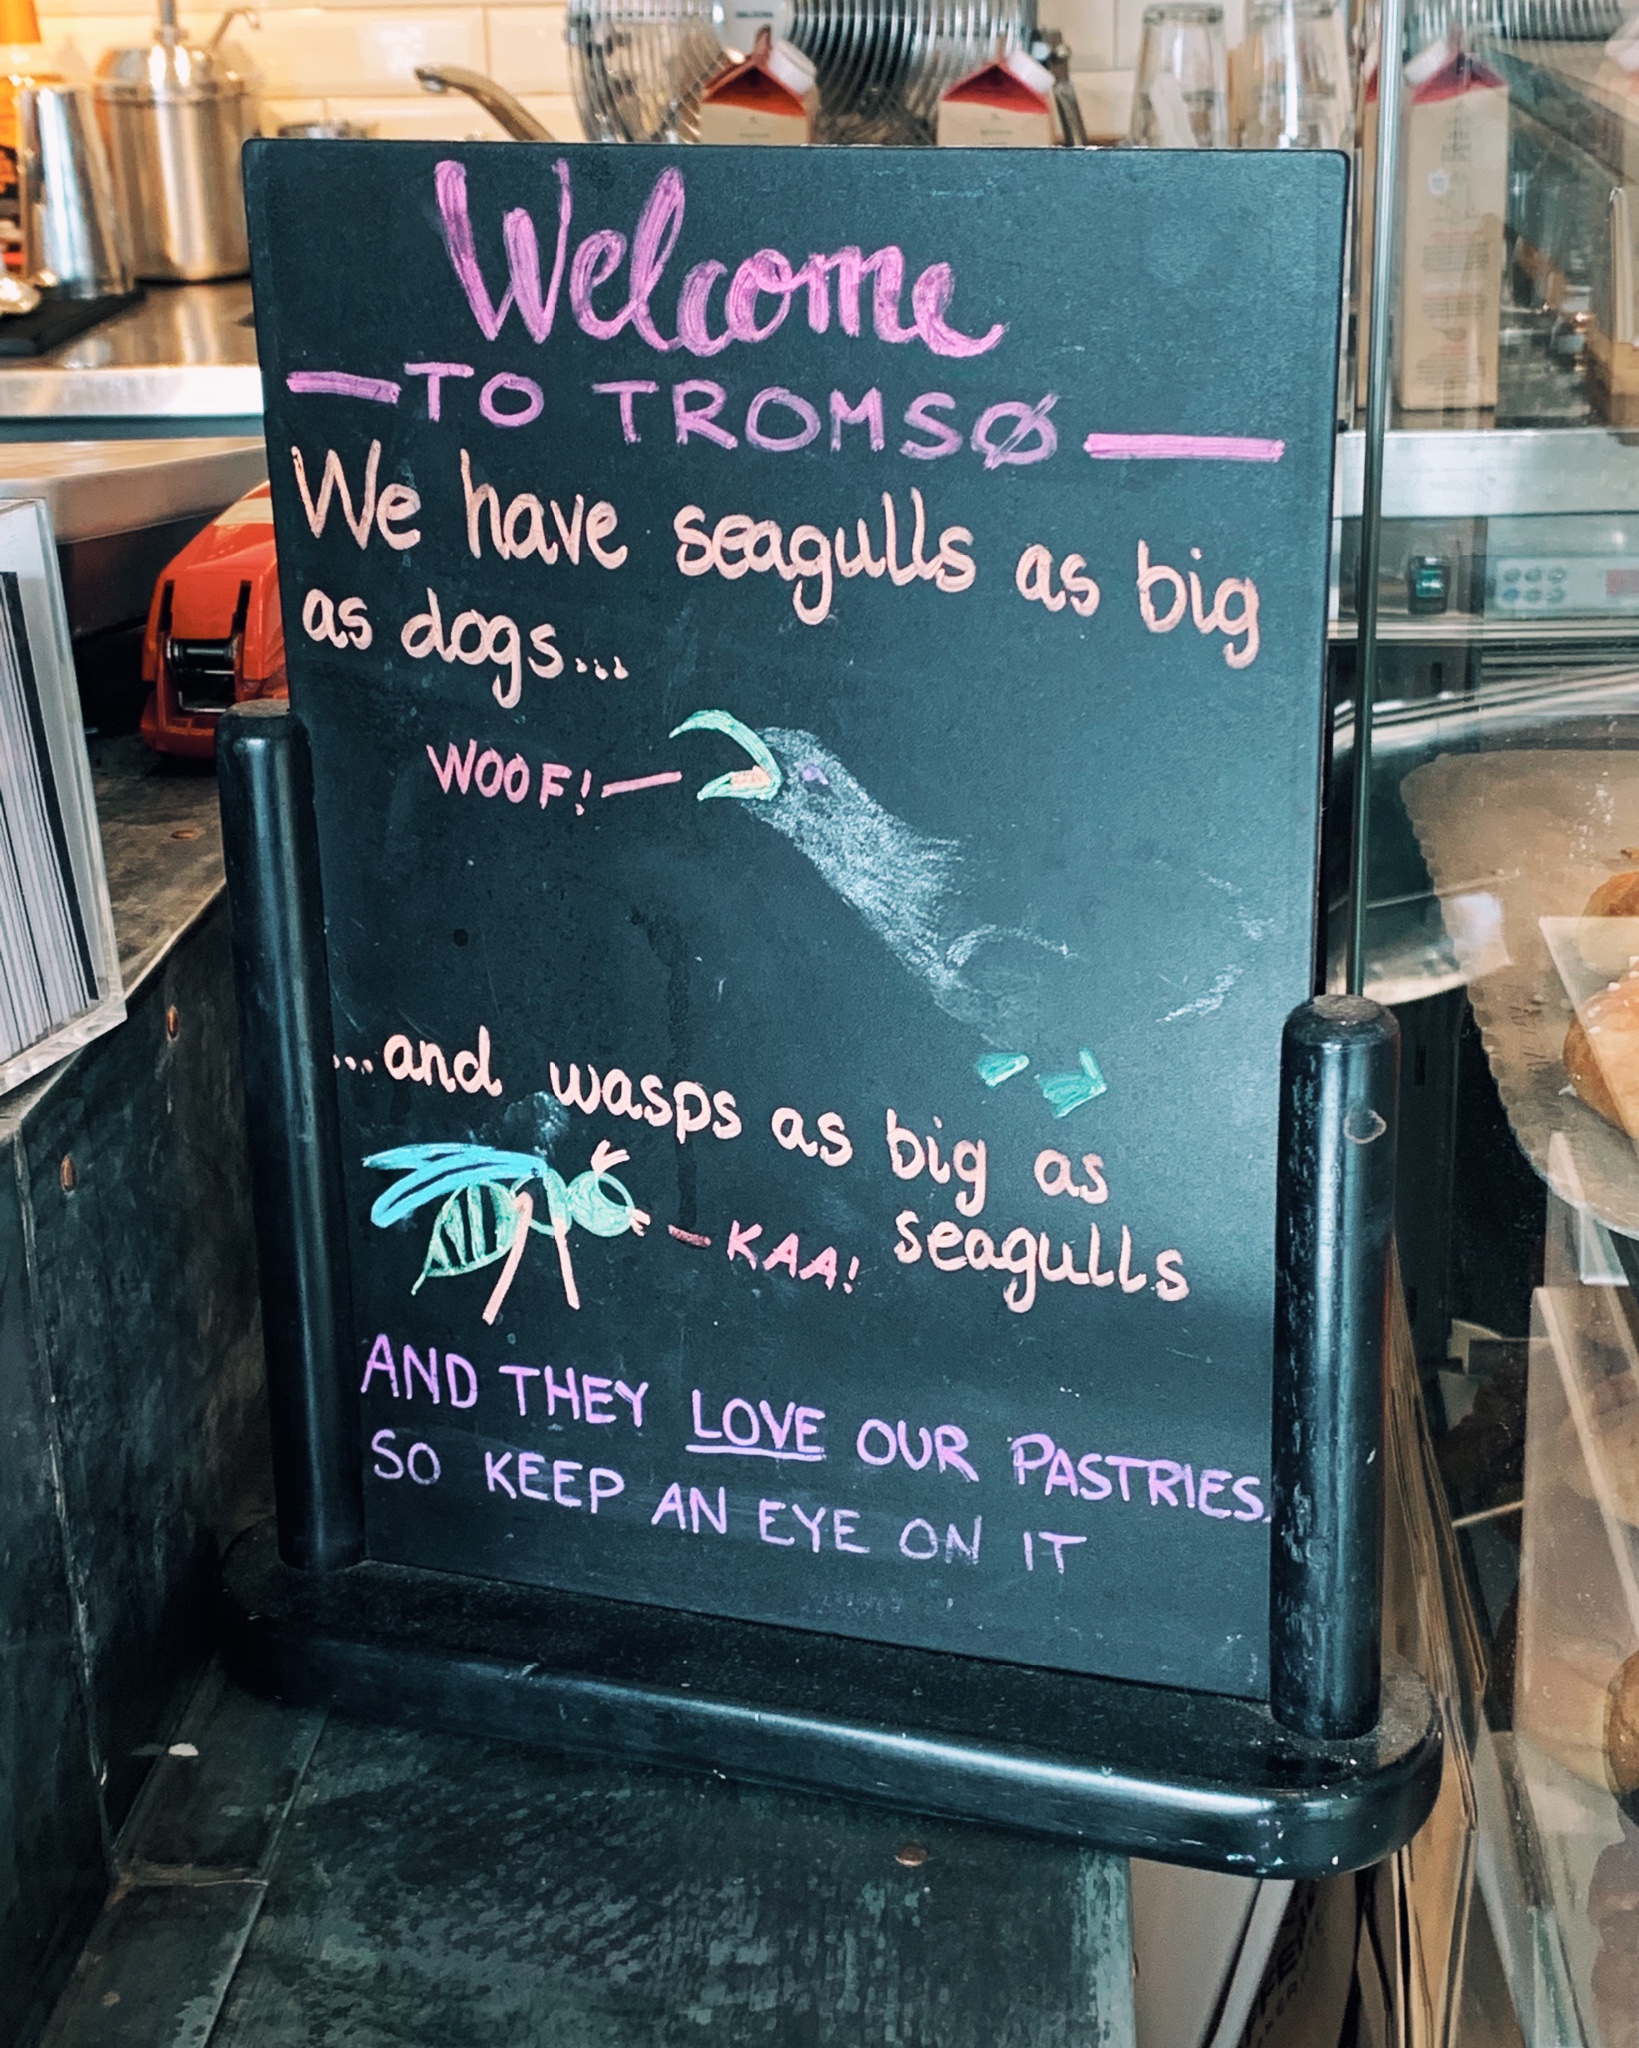 Welcome
TO TROMSØ
We have seagulls as big
as dogs...
WOOF!
...and wasps as big as
seagulls
KAA!
AND THEY LOVE OUR PASTRIES,
SO KEEP AN EYE ON IT